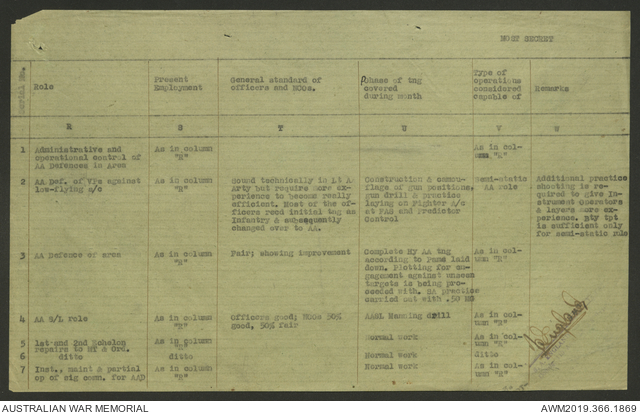 MOST SECRET
Serial No.
Role
Present Employment
General standard of officers and NCOs.
Phase of tng covered during month
Type of operations considered capable of
Remarks
R S T U V W
1 Administrative and operational control of AA Defences in Area
As in column "R"
As in column "R"
2 AA Def. of VPs against low-flying a/c
As in column "R"
Sound technically in Lt AA Arty but require more experience to become really efficient. Most of the officers recd initial tng as Infantry & subsequently changed over to AA.
Construction & camouflage of gun positions, gun drill & practice laying on fighter a/c at PAS and Predictor Control
Semi-static AA role
Additional practice shooting is required to give Instrument operators & layers more experience. Bty tpt is sufficient only for semi-static role
3 AA Defence of area
As in column "R"
Fair; showing improvement
Complete Hy AA tng according to Pams laid down. Plotting for engagement against unseen targets is being proceeded with. SA practice carried out with .50 MG
As in column "R"
4 AA S/L role
As in column "R"
Officers good; NCOs 50% good, 50% fair
AASL Manning drill
As in column "R"
5 1st and 2nd Echelon repairs to MT & Ord.
As in column "R"
Normal work
As in column "R"
6 ditto
ditto
Normal work
ditto
7 Inst., maint & partial op of sig comm. for AAD
As in column "R"
Normal work
As in column "R"
AUSTRALIAN WAR MEMORIAL
AWM2019.366.1869